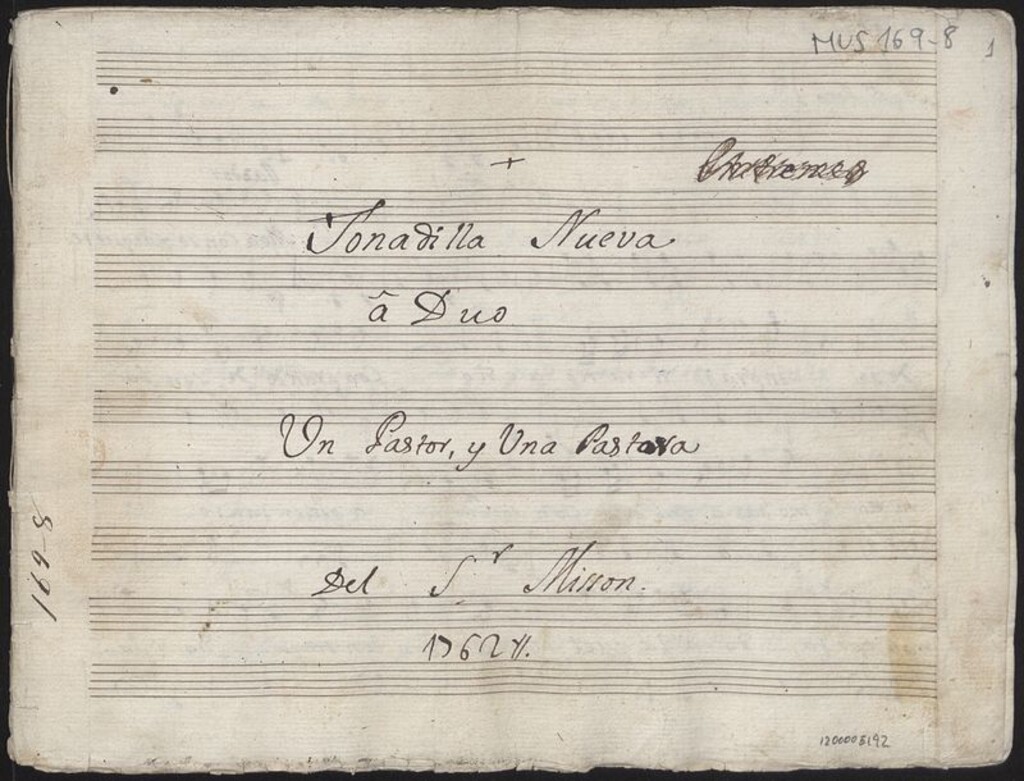 MUS 169-8 1
Entremes
Tonadilla Nueva
â Duo
Un Pastor, y Una Pastora
Del S.r Misson.
1762
169-8
1200005192